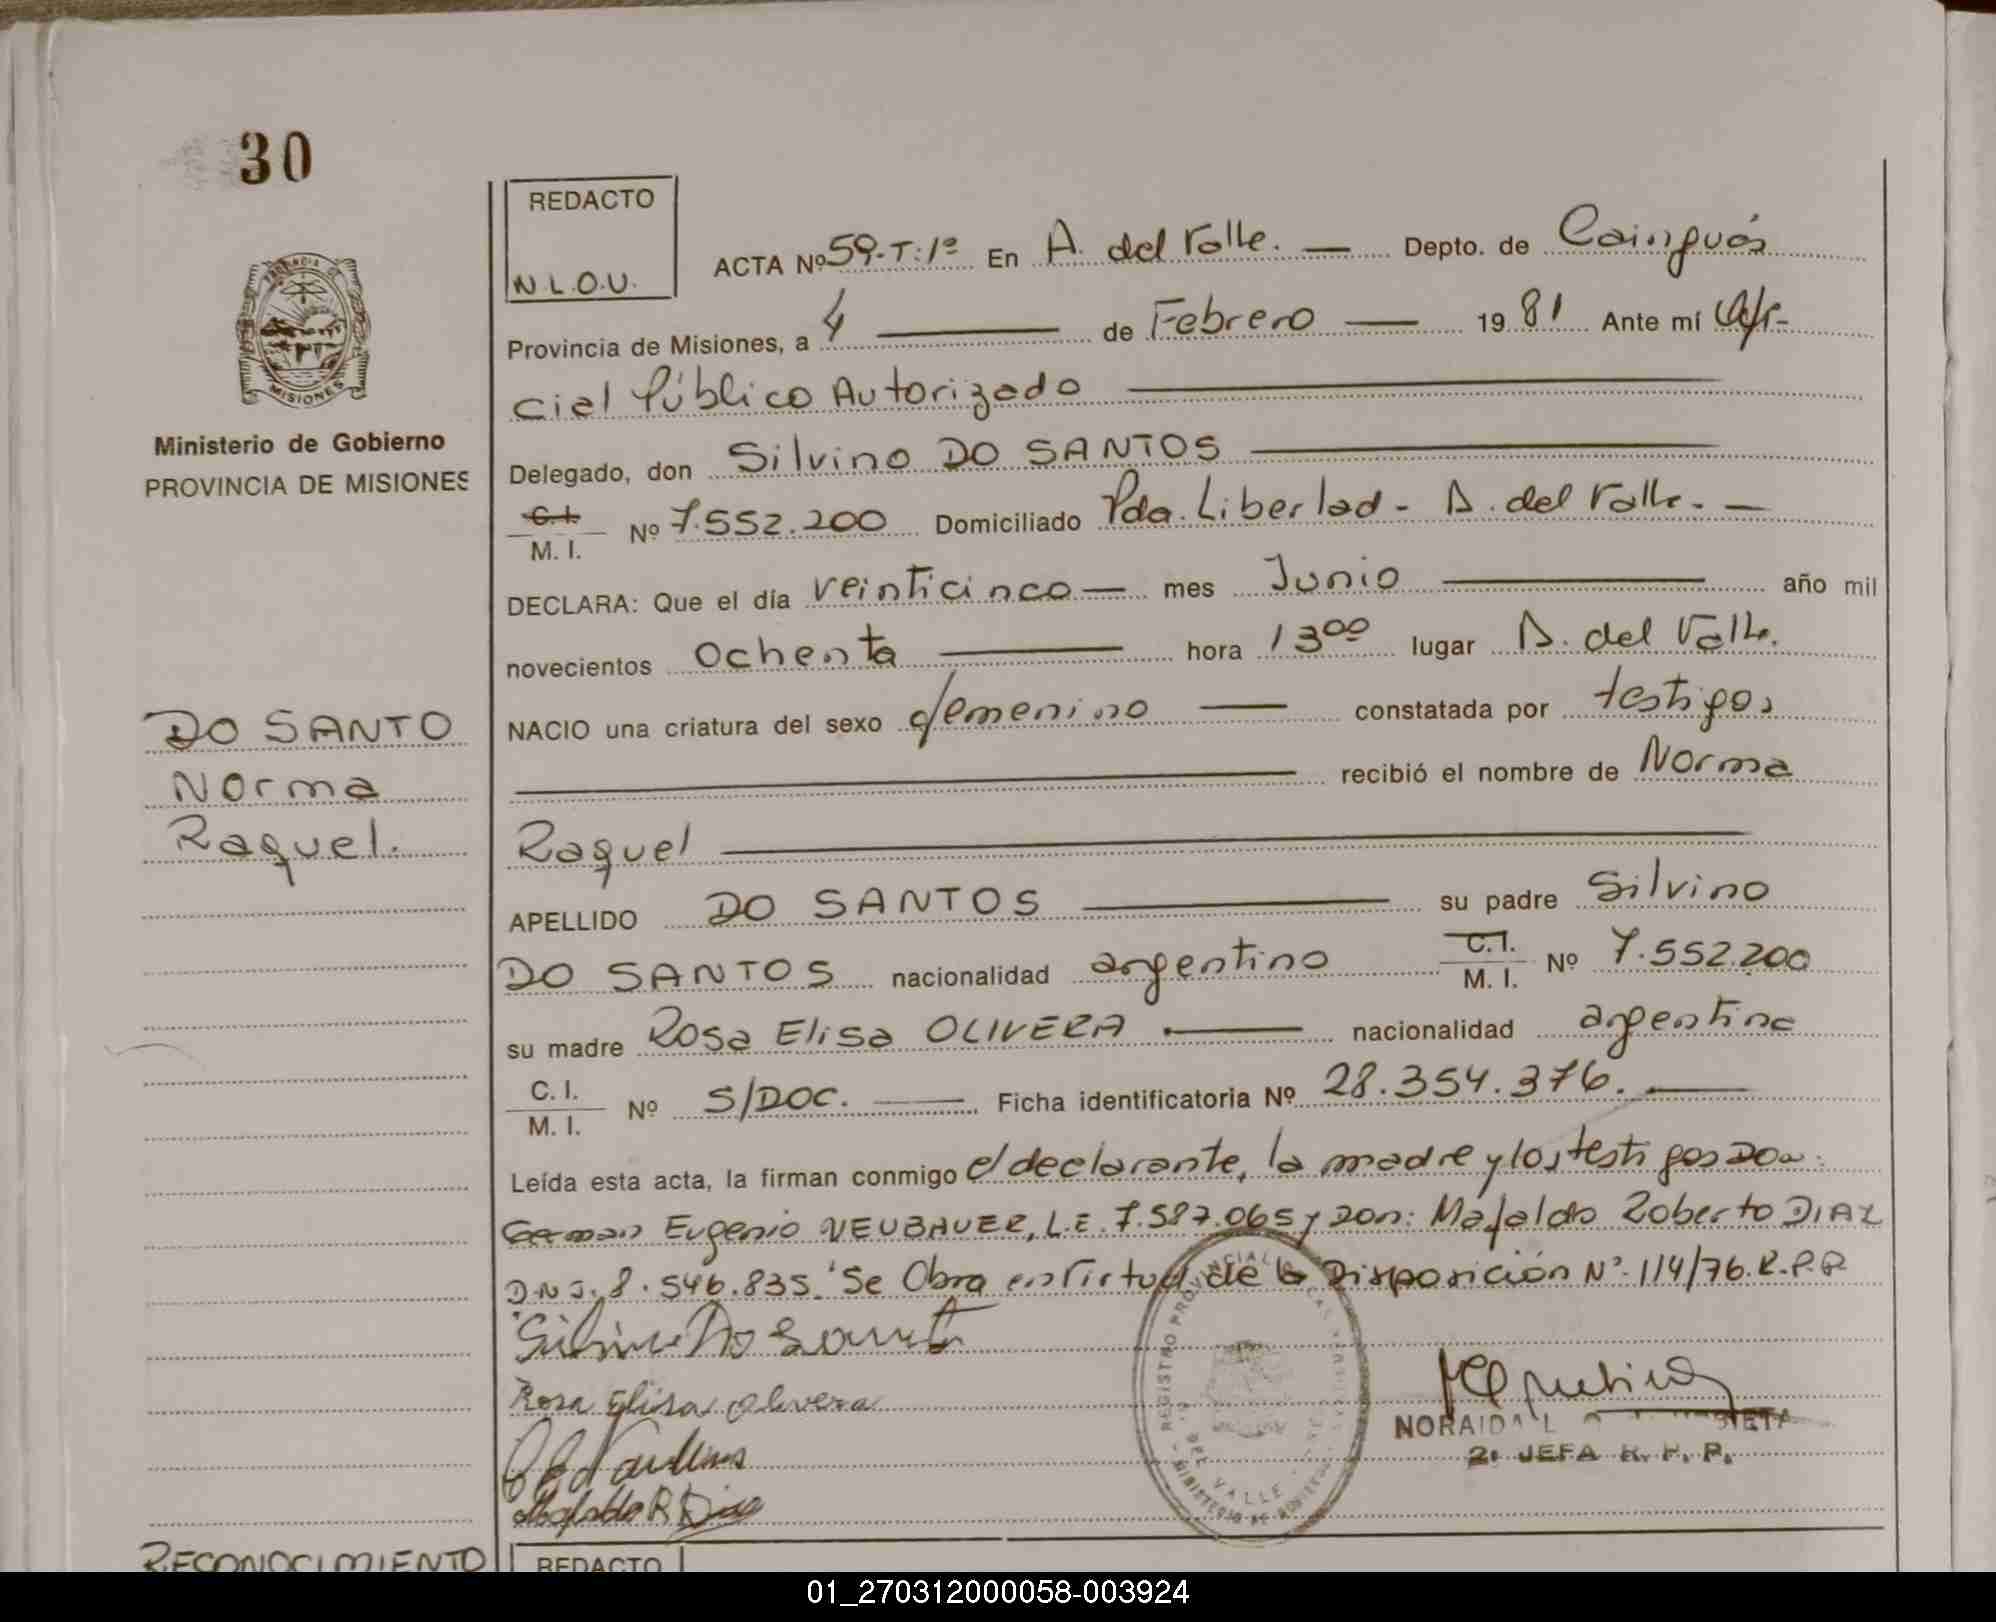 30
REDACTO
N L.O.U.
ACTA Nº 59-T:1º En A. del Valle. — Depto. de Cainguás
Provincia de Misiones, a 4 — de Febrero — 1981 Ante mí Ofi-
cial Público Autorizado
Ministerio de Gobierno
PROVINCIA DE MISIONES
Delegado, don Silvino DO SANTOS
C. I.
M. I. Nº 7.552.200 Domiciliado Pda. Libertad - A. del Valle. —
DECLARA: Que el día veinticinco — mes Junio — año mil
novecientos Ochenta — hora 13⁰⁰ lugar A. del Valle.
DO SANTO
Norma
Raquel.
NACIO una criatura del sexo femenino — constatada por testigos
— recibió el nombre de Norma
Raquel —
APELLIDO DO SANTOS — su padre Silvino
DO SANTOS nacionalidad argentino C.I. M. I. Nº 7.552.200
su madre Rosa Elisa OLIVERA . — nacionalidad argentina
C. I.
M. I. Nº S/DOC. — Ficha identificatoria Nº 28.354.376. —
Leída esta acta, la firman conmigo el declarante, la madre y los testigos Don:
German Eugenio NEUBAUER, L.E. 7.587.065 y Don: Mafaldo Roberto DIAZ
D.N.I. 8.546.835. Se Obra en Virtud de la Disposición Nº 114/76.R.P.P.
Rosa Elisa Olivera
Mafaldo R Diaz
REGISTRO PROVINCIAL
DEL VALLE
MINISTERIO DE GOBIERNO
NORAIDA L
2ª JEFA R. P. P.
RECONOCIMIENTO
REDACTO
01_270312000058-003924